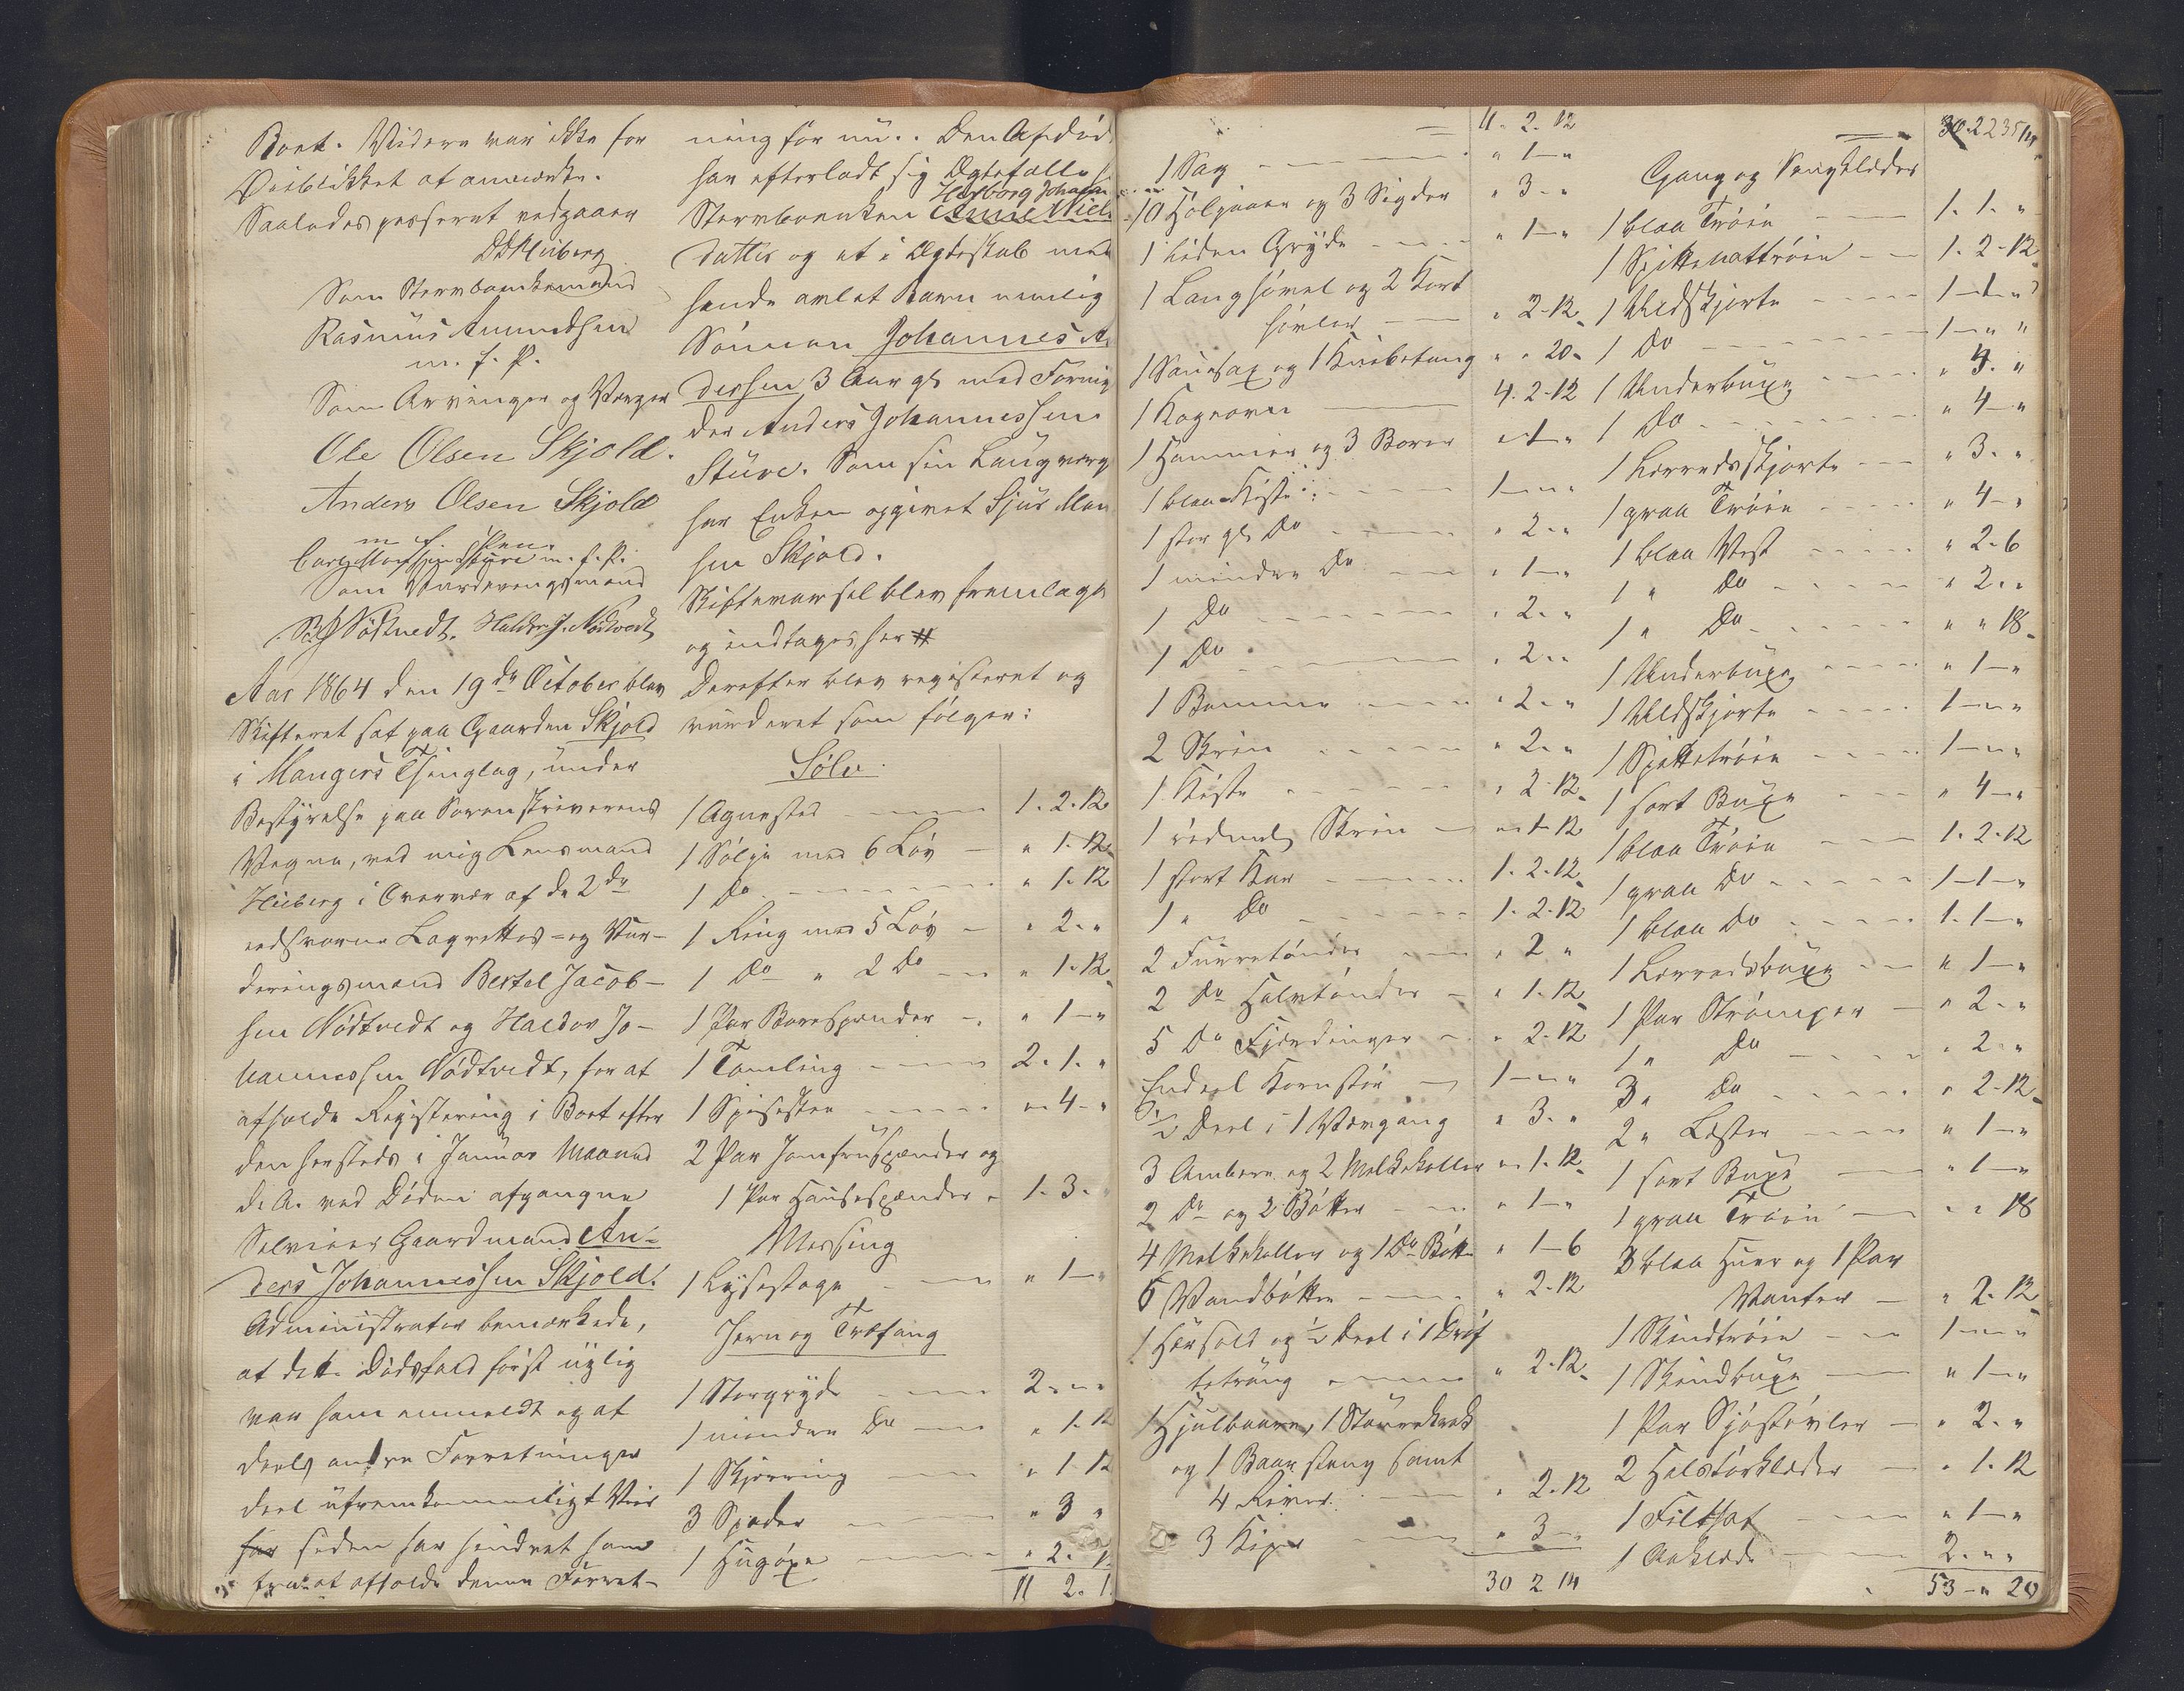 Boet. Videre var ikke for
Øieblikket at anmærke.
Saaledes passeret vedgaaer
DDHeiberg
Som Stervboenkemand
Rasmus Amundsen
m. f. P.
Som Arvinger og Værger
Ole Olsen Skjold.
Anders Olsen Skjold
m. f. Pen.
m. f. P.
Som Vurderingsmænd
Nødtvedt. Haldor J. Nødtvedt
Aar 1864 den 19de October blev
Skifteret sat paa Gaarden Skjold
i Mangers Thinglag, under
Bestyrelse paa Sorenskriverens
Vegne, ved mig Lensmand
Heiberg i Overvær af de 2de
eedsvorne Lagrettes- og Vur-
deringsmænd Bertel Jacob-
sen Nødtvedt og Haldor Jo-
hannessen Nødtvedt, for at
afholde Registering i Boet efter
den hersteds i Januar Maaned
d. A. ved Døden afgangne
Selveier Gaardmand An-
ders Johannessen Skjold.
Administrator bemærkede,
at dette Dødsfald først nylig
var ham anmeldt og at
deels andre Forretninger
deel ufremkommeligt Veir
for siden har hindret ham
fra at afholde denne Forret-
ning før nu. Den Afdød
har efterladt sig Ægtefælle
Herborg Johann
Stervboenken Anne Niels
datter og et i Ægteskab med
hende avlet Barn nemlig
Sønnen Johannes An
dersen 3 Aar gl. med Formyn
der Anders Johannessen
Stüve. Som sin Laugværge
har Enken opgivet Sjur Mon
sen Skjold.
Skiftevarsel blev fremlagt
og indtages her #
Derefter blev registeret og
vurderet som følger:
Sølv
1 Agnested 1. 2. 12
1 Sølje med 6 Løv " 1. 12
1 Do " 1. 12
1 Ring med 5 Løv " 2. "
1 Do " 2 Do " 1. 12
1 Par Borespænder " 1 "
1 Tomling 2. 1. "
1 Spiseskee " 4 "
2 Par Jomfruspænder og
1 Par Hausespænder 1. 3.
Messing
1 Lysestage " 1 "
Jern og Træfang
1 Storgryde 2. " "
1 mindre Do " 1. 12
1 Skjerring " 1 12
3 Spader " 3 "
1 Hugøxe " 2.
11 2. 1
11. 2. 12
1 Sag " 1 "
10 Høljaaer og 3 Sigder " 3. "
1 liden Gryde " 1 "
1 Langhøvel og 2 Kort
høvler " 2. 12
1 Sauesax og 1 Knibetang " " 20
1 Kogeovn 4. 2. 12
1 Hammer og 3 Borer " 1 "
1 blaa Kiste 1 " "
1 stor gl. Do " 2. "
1 mindre Do " 1 "
1 Do " 2. "
1 Do " 2. "
1 Bomme " 2. "
2 Skrin " 2. "
1 Kiste " 2. 12
1 rødmalt Skrin " 1. 12
1 stort Kar 1. 2. 12
1 " Do 1. 2. 12
2 Furretønder " 2 "
2 Do Halvtønder " 1. 12
5 Do Fjerdinger " 2. 12
Endeel Kornstør 1 " "
1/2 Deel i 1 Vævgang " 3. "
3 Ambere og 2 Melkekoller " 1. 12
2 Do og 2 Bøtter " 1 "
4 Melkekoller og 1 Do Bøtte " 1 6
6 Vandbøtter " 2. 12
1 Hørsold og 1/2 Deel i 1 Drøf
tetroug " 2. 12
1 Hjulbaare, 1 Staurekrak
og 1 Baar stang samt
4 River " 2. 12
3 Kiper " 3
30 2 14
30. 2 14
Gang og Sengklæder
1 blaa Trøie 1. 1. "
1 Spittenattrøie 1. 2. 12
1 Uldskjorte 1 1 "
1 Do 1 " "
1 Underbuxe " 4. "
1 Do " 4 "
1 Lærredsskjorte " 3. "
1 graa Trøie " 4 "
1 blaa Vest " 2. 6
1 " Do " 2. "
1 " Do " " 18
1 Underbuxe " 1 "
1 Uldskjorte 1 " "
1 Spittetrøie 1 " "
1 sort Buxe " 4 "
1 blaa Trøie 1. 2. 12
1 graa Do 1 1 "
1 blaa Do 1. 1 "
1 Lærredsbuxe " 1 "
1 Par Strømper " 2. "
1 " Do " 2 "
3 " Do " 2. 12
2 " Lester " 1 "
1 sort Buxe " 1 "
1 graa Trøie " " 18
3 blaa Huer og 1 Par
Vanter " 2. 12
1 Skindtrøie 1 " "
1 Skindbuxe " 1 "
1 Par Sjøstøvler " 2. "
2 Halstørklæder " 1. 12
1 Filthat " 1 "
1 Aaklæde 2. " "
53 " 20